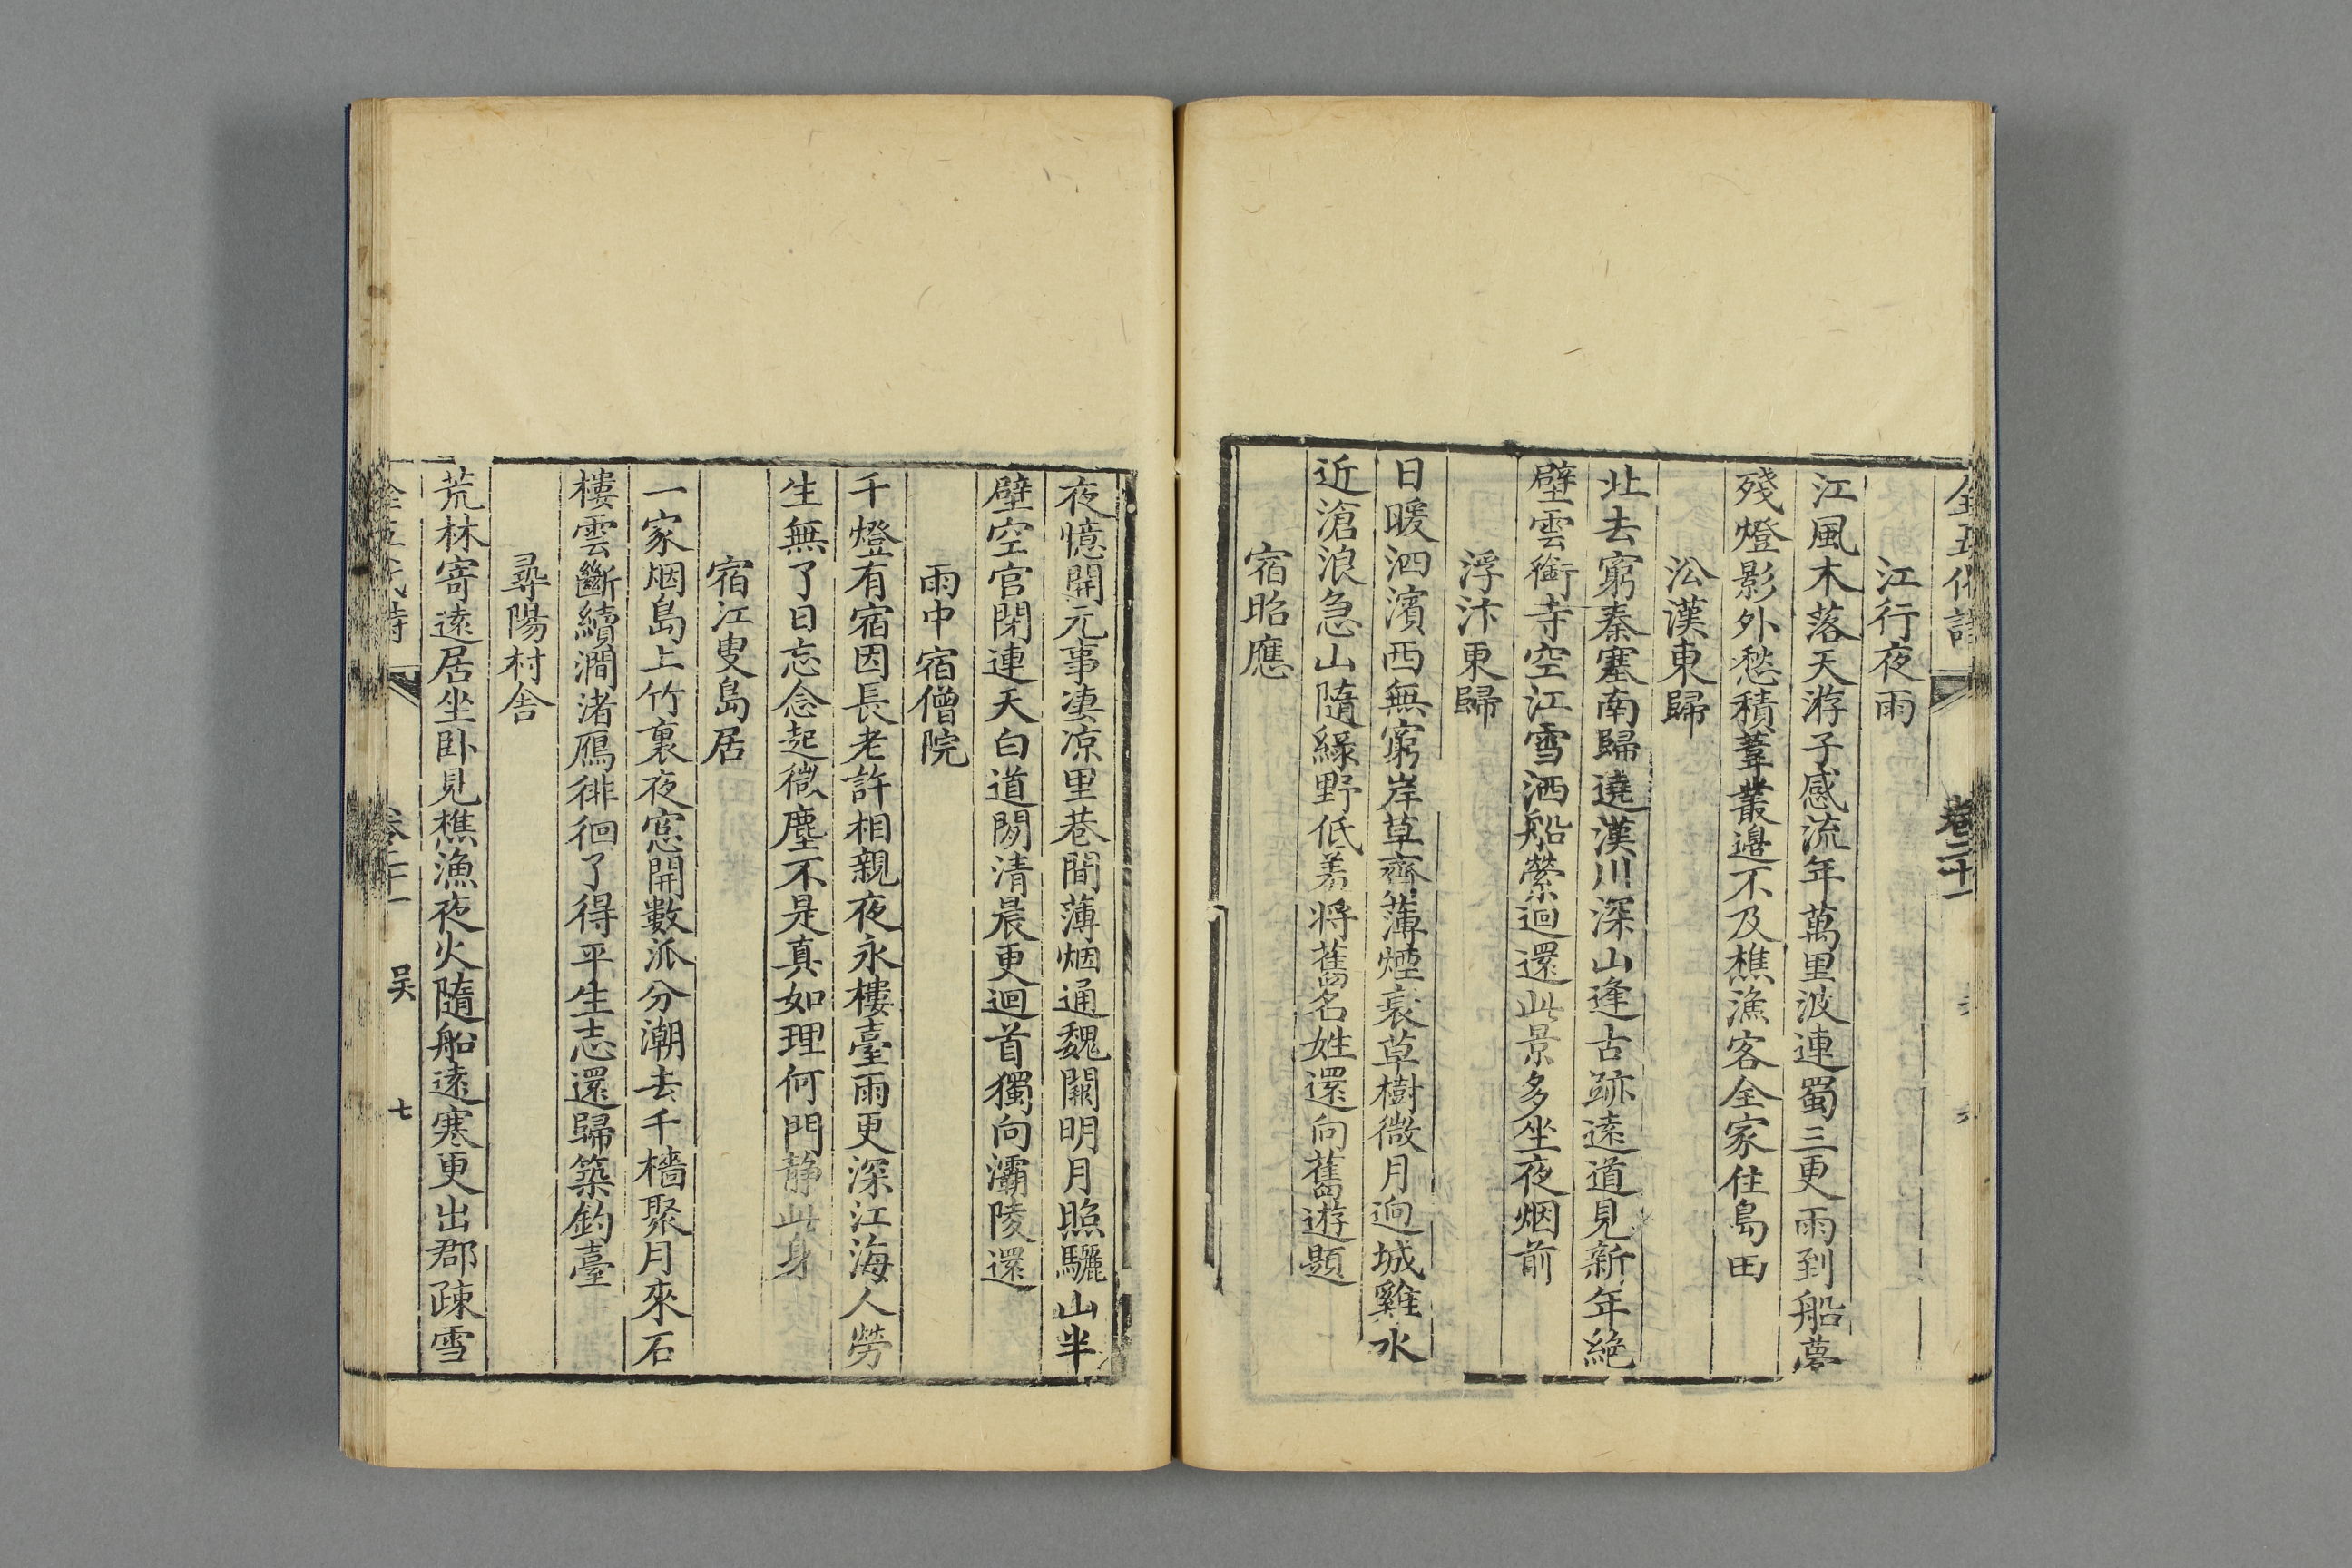 全五代詩 卷二十一 六
江行夜雨
江風木落天游子感流年萬里波連蜀三更雨到船夢
殘燈影外愁積葦叢邊不及樵漁客全家住島田
㳂漢東歸
北去窮秦塞南歸遶漢川深山逢古跡遠道見新年絶
壁雲銜寺空江雪洒船縈迴還此景多坐夜烟前
浮汴東歸
日暖泗濱西無窮岸草齊薄煙衰草樹微月迥城雞水
近滄浪急山隨綠野低羞將舊名姓還向舊遊題
宿昭應
夜憶開元事凄凉里巷間薄烟通魏闕明月照驪山半
壁空官閉連天白道閑清晨更迴首獨向灞陵還
雨中宿僧院
千燈有宿因長老許相親夜永樓臺雨更深江海人勞
生無了日忘念起微塵不是真如理何門静此身
宿江叟島居
一家烟島上竹裏夜窓開數派分潮去千檣聚月來石
樓雲斷續澗渚鴈徘徊了得平生志還歸築釣臺
尋陽村舍
荒林寄遠居坐卧見樵漁夜火隨船遠寒更出郡疎雪
全五代詩 卷二十一 吴 七